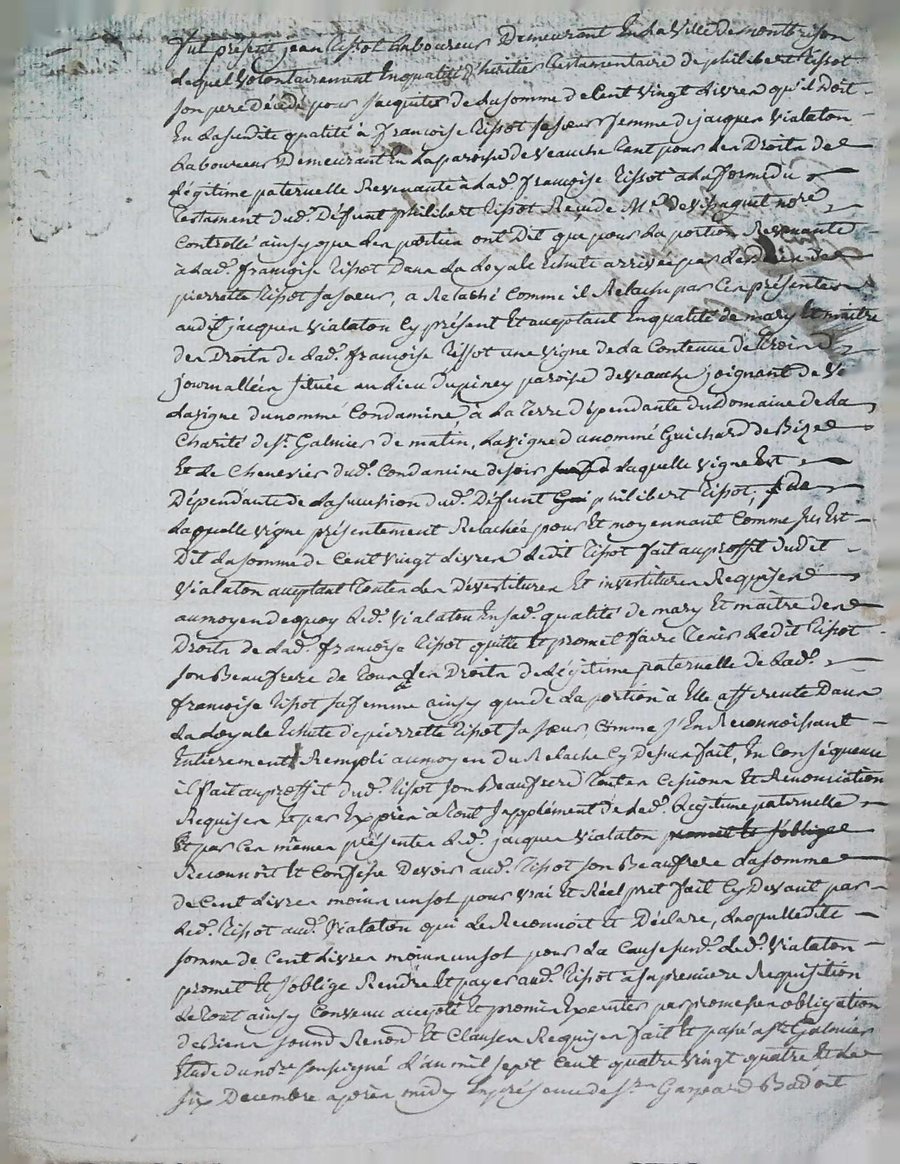 fut présent jean Tissot Laboureur Demeurant En La Ville de montbrison
Lequel Volontairement En qualité d'heritier Testamentaire de philibert Tissot
son pere Décédé pour s'acquiter de La somme de Cent Vingt Livres qu'il Doit
En Lasusdite qualité à francoise Tissot sa soeur femme de jacques Vialaton
Laboureur Demeurant En La paroisse de Veauche Cent pour Les Droits de
Légitime paternelle Revenante à Lad.e francoise Tissot a La forme du
Testament dud. Défunt philibert Tissot Reçu de M.e De nore
Controllé ainsy que Les parties ont Dit que pour La portion Revenante
à Lad.e francoise Tissot Dans La Loyale Echute arrivée par Le de
pierrette Tissot sa soeur, a Relaché Comme il Relache par Ces présentes
audit jacques Vialaton Cy présent Et acceptant En qualité de mary Et maitre
des Droits de Lad.e francoise Tissot une Vigne de La Contenue de Trois
journallées située au Lieu Dupiney paroisse de Veauche joignant de
La vigne du nommé Condamine à La Terre dépendante du Domaine de La
Charité de St. Galmier de matin, La vigne du nommé Guichard de Bize
Et Le Chenevier dud. Condamine de soir Laquelle Vigne Est
Dépendante de La succession dud. Défunt philibert Tissot,
Laquelle vigne présentement Relachée pour Et moyennant Comme sus Est
Dit La somme de Cent Vingt Livres Ledit Tissot fait au proffit dudit
Vialaton acceptant Toutes Les Dévestitures Et investitures Requises
au moyen de quoy Led. Vialaton En sad. qualité de mary Et maitre des
Droits de Lad.e francoise Tissot quitte Et promet faire Tenir Ledit Tissot
son Beaufrere de Tous Les Droits de Légitime paternelle de Lad.e
francoise Tissot sa femme ainsy que de La portion à Elle afferente Dans
La Loyale Echute de pierrette Tissot sa soeur Comme s'En Reconnoissant
Entierement Rempli au moyen du Relache Cy Dessus fait, En Conséquence
il fait au proffit dud. Tissot son Beaufrere Toutes Cessions Et Renonciation
Requises Et par Exprès à Tout supplément de Lad.e Légitime paternelle
Et par Ces mêmes présentes Led. jacques Vialaton promet Et s'oblige
Reconnoit Et Confesse Devoir aud. Tissot son Beaufrere La somme
de Cent Livres moins un sol pour Vrai Et Réel pret fait Cy Devant par
Led. Tissot aud. Vialaton qui Le Reconnoit Et Déclare, Laquelle dite
somme de Cent Livres moins un sol pour La Cause susd. Led. Vialaton
promet Et s'oblige Rendre Et payer aud. Tissot à sa premiere Requisition
Le Tout ainsy Convenu accepté Et promis Executer par promesses obligation
de Biens soumd Renond Et Clauses Requises fait Et passé a St. Galmier
Etude du nore soussigné L'an mil sept Cent quatre Vingt quatre Et Le
six Decembre après midy En présence de sr. Gaspard Badoit